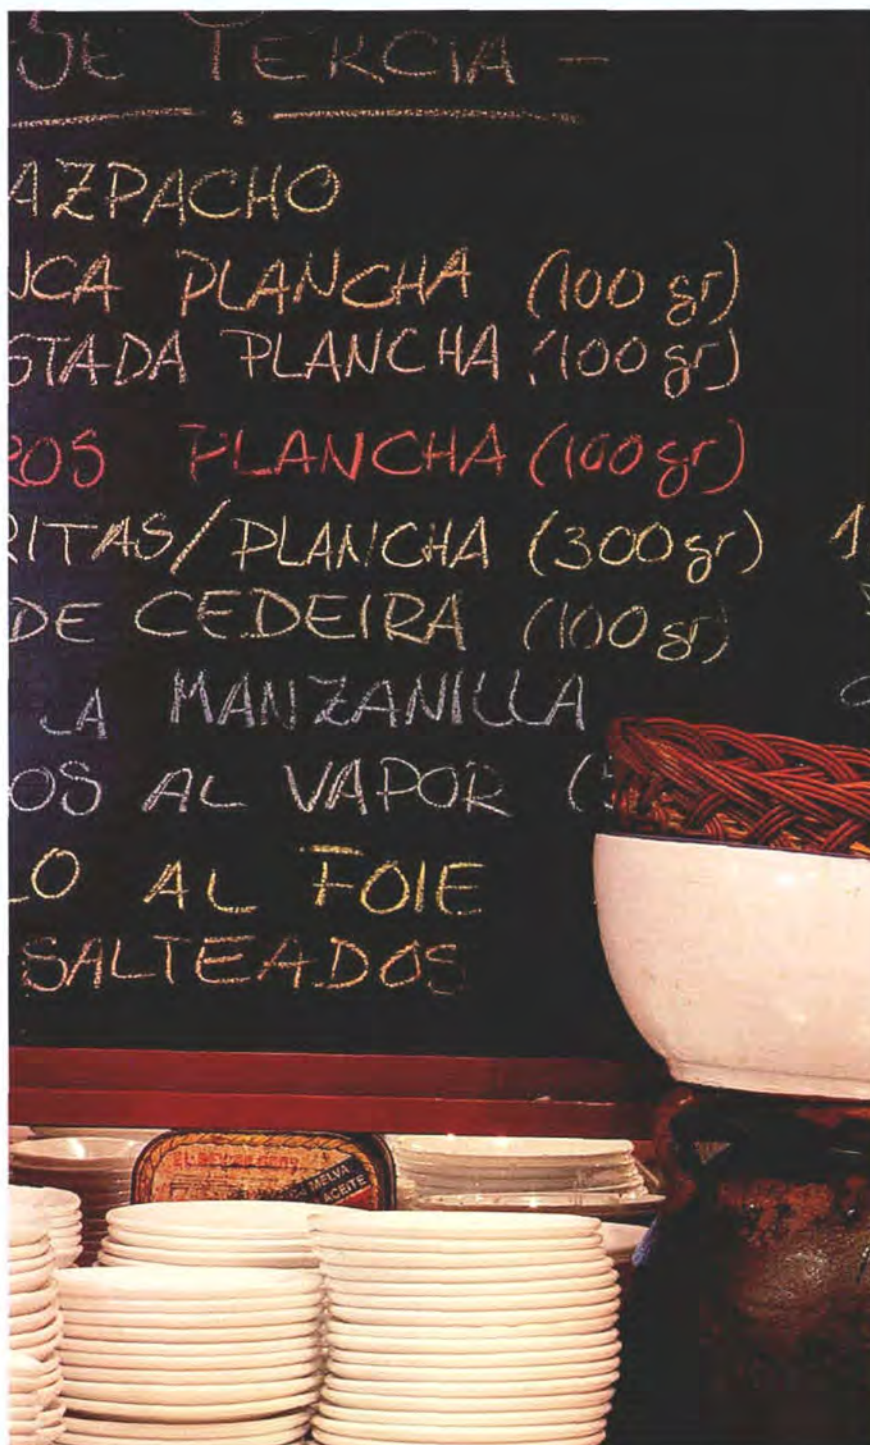 DE TERCIA -
AZPACHO
NCA PLANCHA (100 gr)
STADA PLANCHA (100 gr)
ROS PLANCHA (100 gr)
RITAS/PLANCHA (300 gr) 1
DE CEDEIRA (100 gr)
LA MANZANILLA
OS AL VAPOR (
LO AL FOIE
SALTEADOS
MELVA
ACEITE